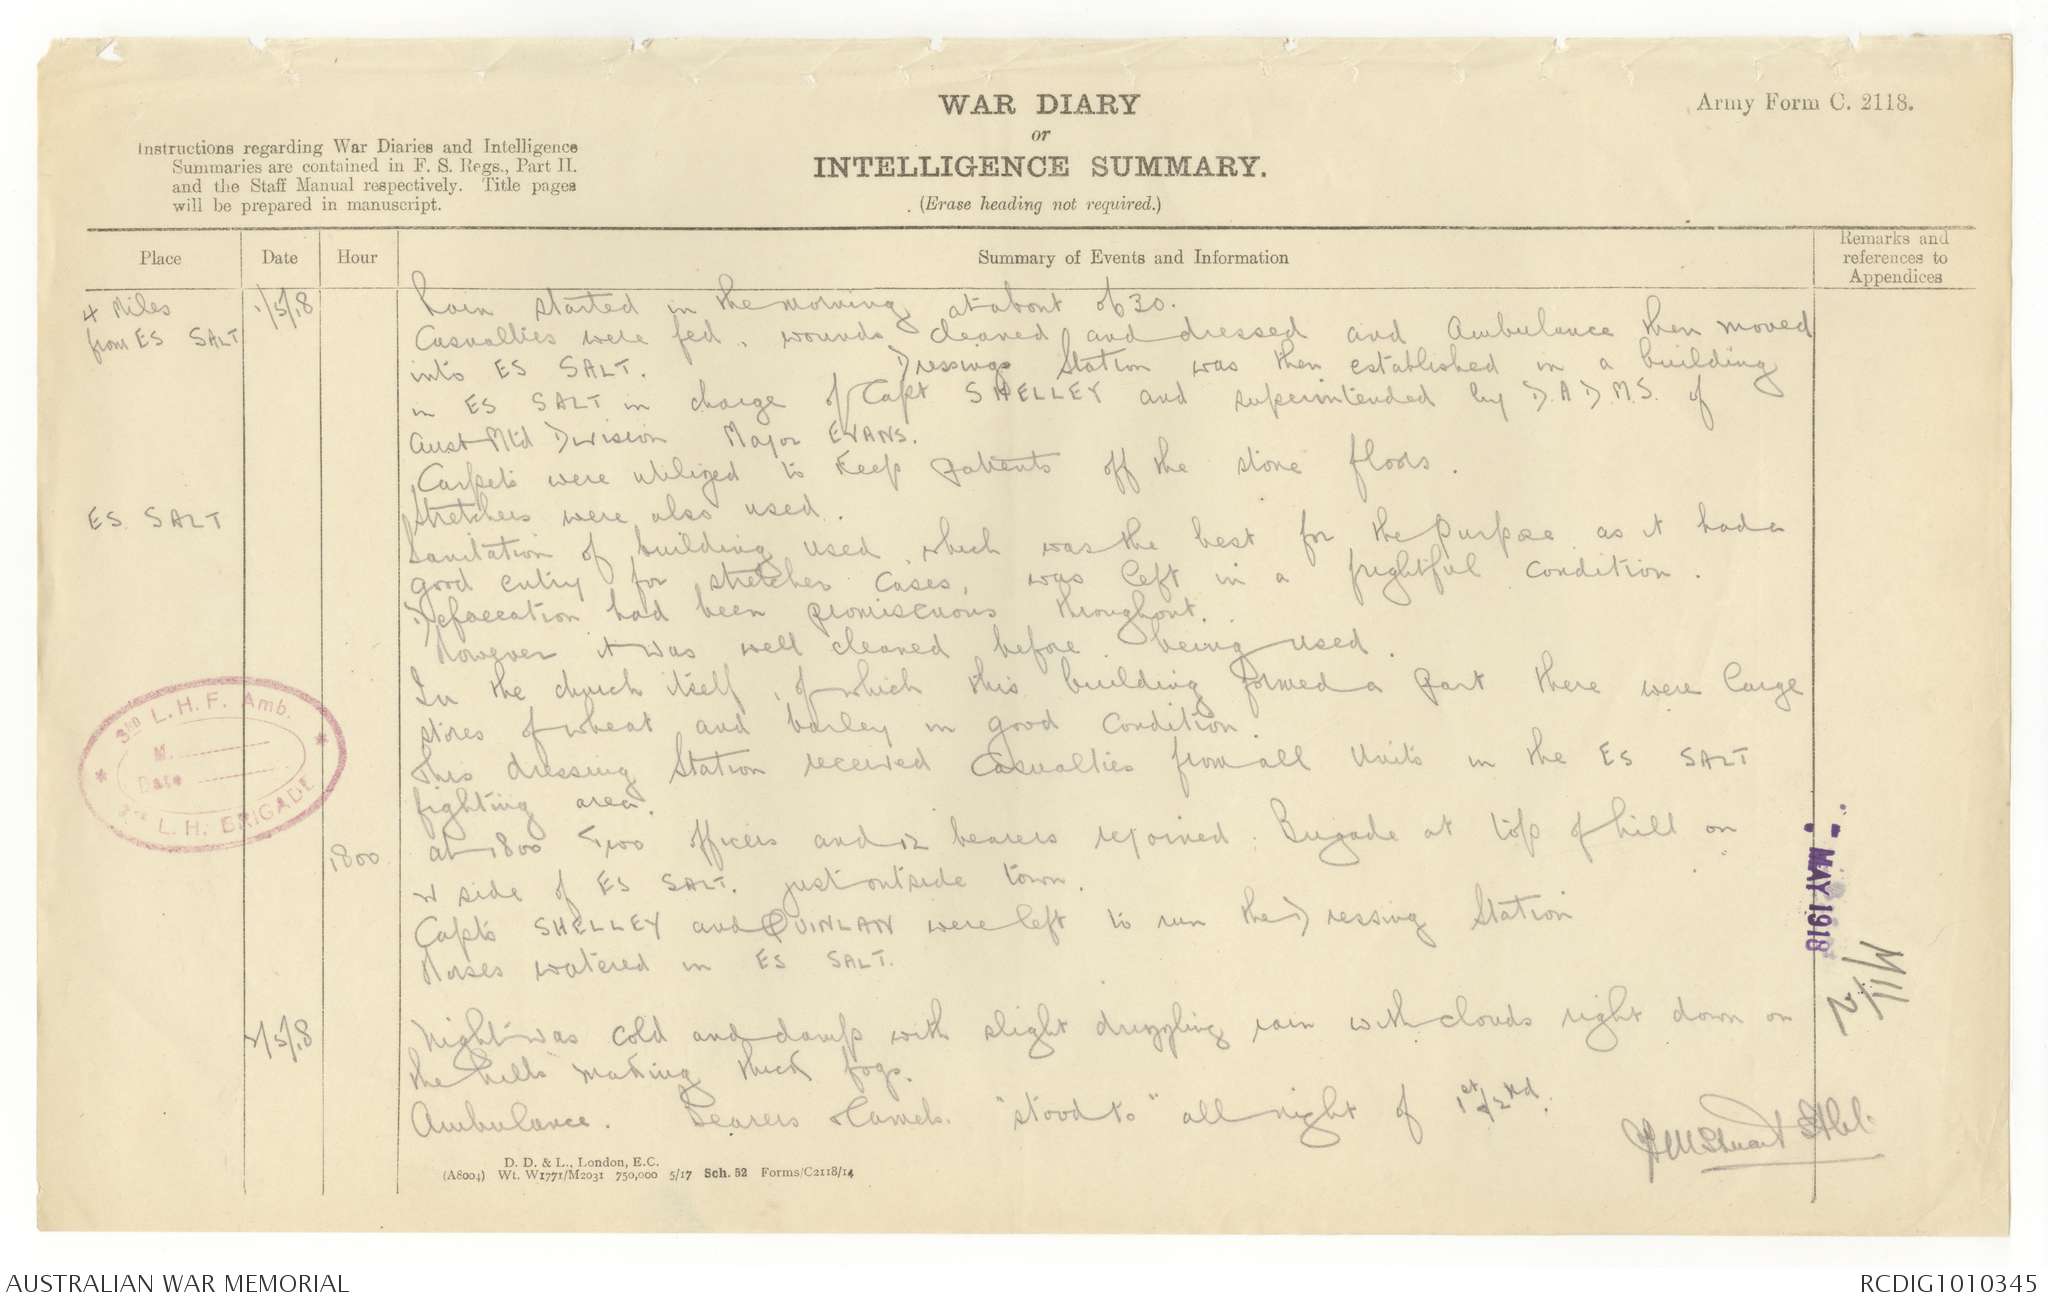 WAR DIARY
or
INTELLIGENCE SUMMARY.
(Erase heading not required.)
Army Form C. 2118.
Instructions regarding War Diaries and Intelligence
Summaries are contained in F. S. Regs., Part II.
and the Staff Manual respectively. Title pages
will be prepared in manuscript.
Place
Date
Hour
Summary of Events and Information
Remarks and
references to
Appendices
4 Miles
from ES SALT
1/5/18
Rain started in the morning at about 0630.
Casualties were fed, wounds cleaned and dressed and Ambulance then moved
into ES SALT. Dressings Station was then established in a building
in ES SALT in charge of Capt SHELLEY and superintended by D.A.D.M.S. of
Aust Mtd Division Major EVANS.
Carpets were utilized to keep patients off the stone floors.
ES SALT
Stretchers were also used.
Sanitation of building used which was the best for the purpose as it had a
good entry for stretcher cases, was left in a frightful condition.
Defaecation had been promiscuous throughout.
However it was well cleaned before being used.
In the church itself, of which this building formed a part there were large
stores of wheat and barley in good condition.
This dressing Station received Casualties from all Units in the ES SALT
fighting area.
1800
at 1800 Two officers and 12 bearers rejoined Brigade at top of hill on
W side of ES SALT. just outside town.
Capts SHELLEY and QUINLAN were left to run the Dressing Station
Horses watered in ES SALT.
2/5/18
Night was cold and damp with slight drizzling rain with clouds right down on
the hills making thick fogs.
Ambulance. Bearers & Camels. "stood to" all night of 1st/2nd.
3RD L.H.F. Amb.
M.
Date
3RD L.H. BRIGADE
MAY 1918
D. D. & L., London, E.C.
(A8004) Wt. W1771/M2031 750,000 5/17 Sch. 52 Forms/C2118/14
AUSTRALIAN WAR MEMORIAL
RCDIG1010345